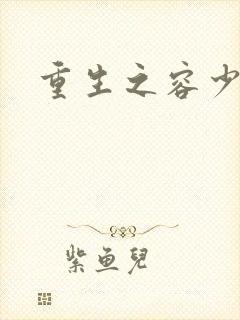 重生之容少
紫鱼儿